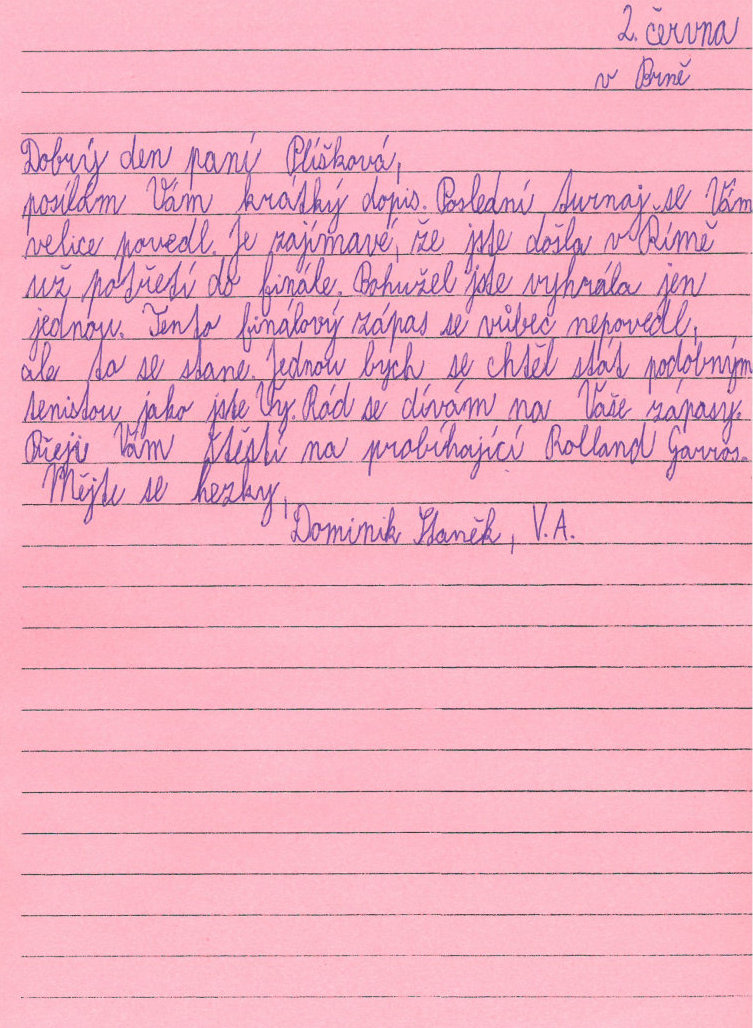 2. června
v Brně
Dobrý den paní Plíšková,
posílám Vám krátký dopis. Poslední turnaj se Vám
velice povedl. Je zajímavé, že jste došla v Římě
už potřetí do finále. Bohužel jste vyhrála jen
jednou. Tento finálový zápas se vůbec nepovedl,
ale to se stane. Jednou bych se chtěl stát podobným
tenistou jako jste Vy. Rád se dívám na Vaše zápasy.
Přeji Vám štěstí na probíhající Rolland Garros.
Mějte se hezky,
Dominik Haněk, V.A.